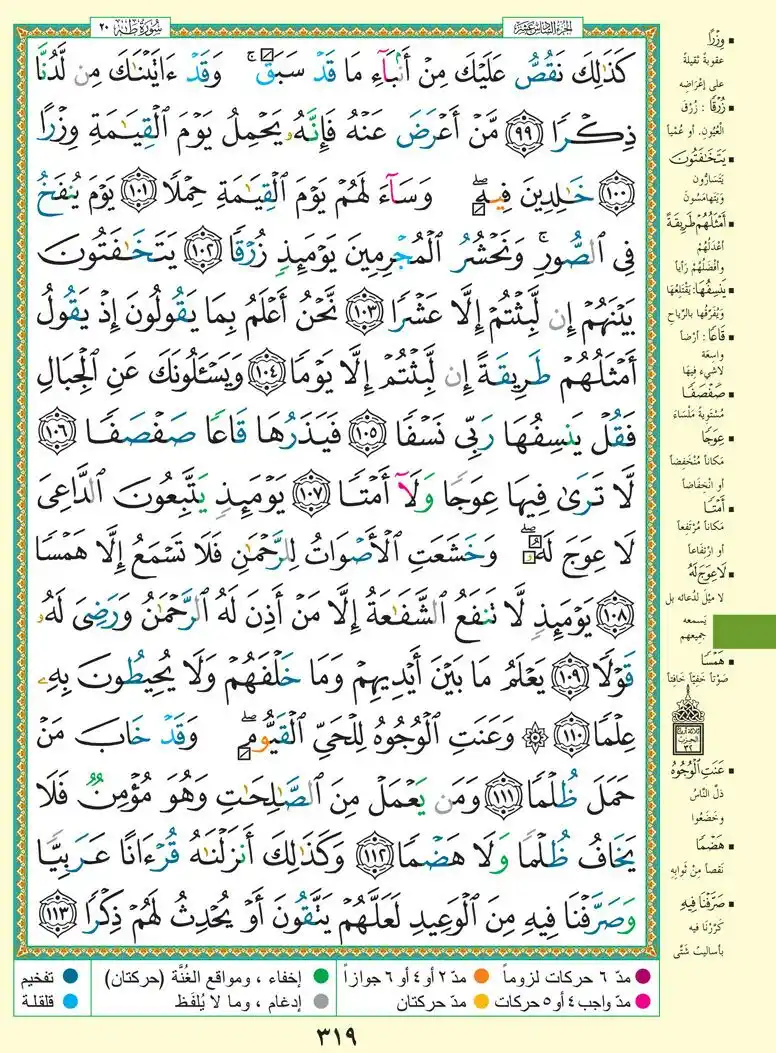 سُورَةُ طه ٢٠
الجزءُ السَّادِسَ عَشَرَ
كَذَٰلِكَ نَقُصُّ عَلَيْكَ مِنْ أَنۢبَآءِ مَا قَدْ سَبَقَ ۚ وَقَدْ ءَاتَيْنَٰكَ مِن لَّدُنَّا
ذِكْرًا ٩٩ مَّنْ أَعْرَضَ عَنْهُ فَإِنَّهُۥ يَحْمِلُ يَوْمَ ٱلْقِيَٰمَةِ وِزْرًا
١٠٠ خَٰلِدِينَ فِيهِ ۖ وَسَآءَ لَهُمْ يَوْمَ ٱلْقِيَٰمَةِ حِمْلًا ١٠١ يَوْمَ يُنفَخُ
فِى ٱلصُّورِ ۚ وَنَحْشُرُ ٱلْمُجْرِمِينَ يَوْمَئِذٍ زُرْقًا ١٠٢ يَتَخَٰفَتُونَ
بَيْنَهُمْ إِن لَّبِثْتُمْ إِلَّا عَشْرًا ١٠٣ نَّحْنُ أَعْلَمُ بِمَا يَقُولُونَ إِذْ يَقُولُ
أَمْثَلُهُمْ طَرِيقَةً إِن لَّبِثْتُمْ إِلَّا يَوْمًا ١٠٤ وَيَسْـَٔلُونَكَ عَنِ ٱلْجِبَالِ
فَقُلْ يَنسِفُهَا رَبِّى نَسْفًا ١٠٥ فَيَذَرُهَا قَاعًا صَفْصَفًا ١٠٦
لَّا تَرَىٰ فِيهَا عِوَجًا وَلَآ أَمْتًا ١٠٧ يَوْمَئِذٍ يَتَّبِعُونَ ٱلدَّاعِىَ
لَا عِوَجَ لَهُۥ ۖ وَخَشَعَتِ ٱلْأَصْوَاتُ لِلرَّحْمَٰنِ فَلَا تَسْمَعُ إِلَّا هَمْسًا
١٠٨ يَوْمَئِذٍ لَّا تَنفَعُ ٱلشَّفَٰعَةُ إِلَّا مَنْ أَذِنَ لَهُ ٱلرَّحْمَٰنُ وَرَضِىَ لَهُۥ
قَوْلًا ١٠٩ يَعْلَمُ مَا بَيْنَ أَيْدِيهِمْ وَمَا خَلْفَهُمْ وَلَا يُحِيطُونَ بِهِۦ
عِلْمًا ١١٠ ۞ وَعَنَتِ ٱلْوُجُوهُ لِلْحَىِّ ٱلْقَيُّومِ ۖ وَقَدْ خَابَ مَنْ
حَمَلَ ظُلْمًا ١١١ وَمَن يَعْمَلْ مِنَ ٱلصَّٰلِحَٰتِ وَهُوَ مُؤْمِنٌ فَلَا
يَخَافُ ظُلْمًا وَلَا هَضْمًا ١١٢ وَكَذَٰلِكَ أَنزَلْنَٰهُ قُرْءَانًا عَرَبِيًّا
وَصَرَّفْنَا فِيهِ مِنَ ٱلْوَعِيدِ لَعَلَّهُمْ يَتَّقُونَ أَوْ يُحْدِثُ لَهُمْ ذِكْرًا ١١٣
▪ وِزْرًا
عقوبةً ثقيلةً
على إعْرَاضِه
▪ زُرْقًا : زُرْقَ
الْعُيُونِ، أو عُمْياً
▪ يَتَخَٰفَتُونَ
يَتَسَارُّون
وَيَتَهَامَسُون
▪ أَمْثَلُهُمْ طَرِيقَةً
أعْدَلُهُمْ
وأفْضَلُهُمْ رَأياً
▪ يَنسِفُهَا: يَقْتَلِعُهَا
وَيُفَرِّقُها بالرِّياحِ
▪ قَاعًا : أرْضاً
واسِعَة
لاشيء فِيهَا
▪ صَفْصَفًا
مُسْتَوِيَةً مَلْسَاءَ
▪ عِوَجًا
مَكَاناً مُنْخَفِضاً
أو انْخِفَاضاً
▪ أَمْتًا
مَكَاناً مُرْتَفِعاً
أو ارْتِفَاعاً
▪ لَا عِوَجَ لَهُ
لا مَيْلَ لدُعَائه بل
يَسمعه
جميعهم
▪ هَمْسًا
صَوْتاً خَفِيّاً خَافِتاً
ثلاثة أرباع
الحزب
٣٢
▪ عَنَتِ ٱلْوُجُوهُ
ذلَّ النَّاسُ
وخَضَعُوا
▪ هَضْمًا
نَقصاً مِنْ ثَوابِهِ
▪ صَرَّفْنَا فِيهِ
كَرَّرْنَا فيه
بأساليبَ شَتَّى
مدّ ٦ حركات لزوماً
مدّ ٢ أو ٤ أو ٦ جوازاً
إخفاء ، ومواقع الغُنَّة (حركتان)
تفخيم
مدّ واجب ٤ أو ٥ حركات
مدّ حركتان
إدغام ، وما لا يُلفَظ
قلقلة
٣١٩